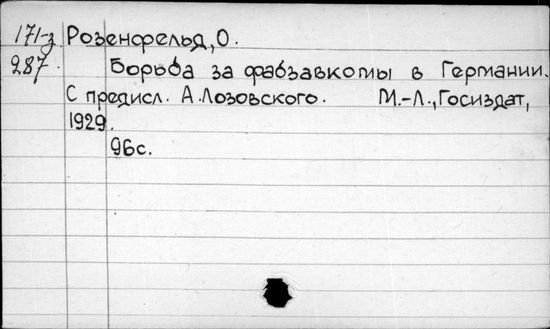 171-з Розенфельд, О.
287. Борьба за фабзавкомы в Германии.
С предисл. А.Лозовского. М.-Л., Госиздат,
1929.
96с.